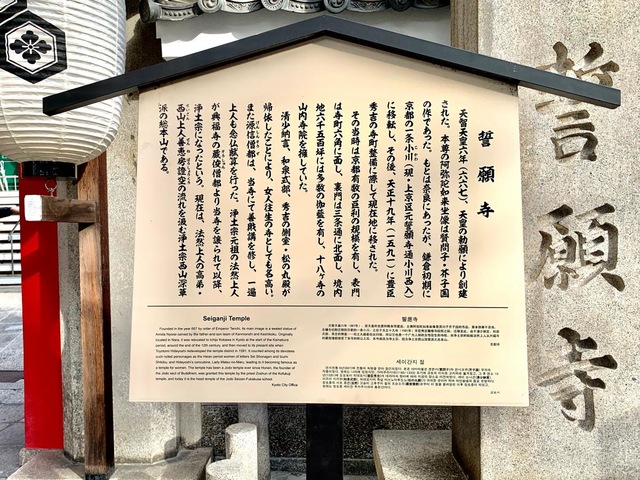 誓願寺
天智天皇六年（六六七）、天皇の勅願により創建
された。本尊の阿弥陀如来坐像は賢問子・芥子国
の作であった。もとは奈良にあったが、鎌倉初期に
京都の一条小川（現・上京区元誓願寺通小川西入）
に移転し、その後、天正十九年（一五九一）に豊臣
秀吉の寺町整備に際して現在地に移された。
その当時は京都有数の巨刹の規模を有し、表門
は寺町六角に面し、裏門は三条通に北面し、境内
地六千五百坪には多数の伽藍を有し、十八ヶ寺の
山内寺院を擁していた。
清少納言、和泉式部、秀吉の側室・松の丸殿が
帰依したことにより、女人往生の寺としても名高い。
また源信僧都は、当寺にて善財講を修し、一遍
上人も念仏賦算を行った。浄土宗元祖の法然上人
が興福寺の蔵俊僧都より当寺を譲られて以降、
浄土宗になったという。現在は、法然上人の高弟・
西山上人善恵房證空の流れを汲む浄土宗西山深草
派の総本山である。
Seiganji Temple
Founded in the year 667 by order of Emperor Tenchi, its main image is a seated statue of
Amida Nyorai carved by the father and son team of Kenmonshi and Keshikoku. Originally
located in Nara, it was relocated to Ichijo Kokawa in Kyoto at the start of the Kamakura
period, around the end of the 12th century, and then moved to its present site when
Toyotomi Hideyoshi redeveloped the temple district in 1591. It counted among its devotees
such noted personages as the Heian period women of letters Sei Shonagon and Izumi
Shikibu, and Hideyoshi's concubine, Lady Matsu-no-Maru, leading to it becoming famous as
a temple for women. The temple has been a Jodo temple ever since Honen, the founder of
the Jodo sect of Buddhism, was granted this temple by the priest Zoshun of the Kofukuji
temple, and today it is the head temple of the Jodo Seizan Fukakusa school.
Kyoto City Office
誓愿寺
세이간지 절
誓願寺